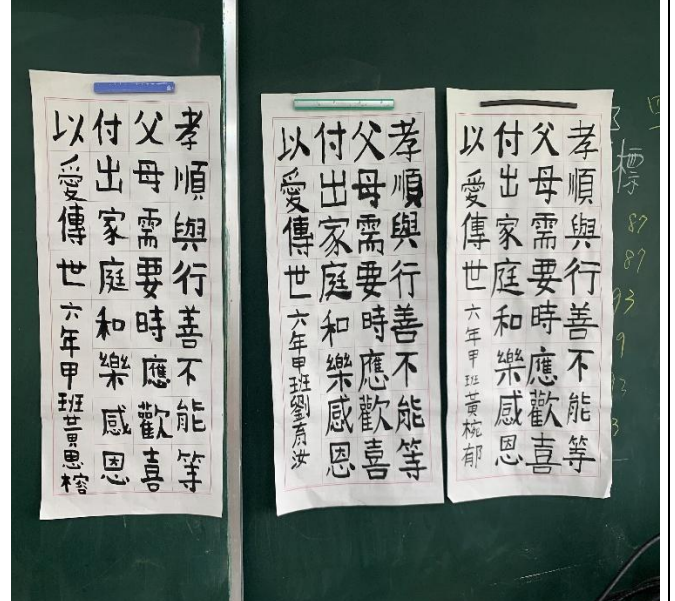 孝順與行善不能等
父母需要時應歡喜
付出家庭和樂感恩
以愛傳世 六年甲班黃思榕
孝順與行善不能等
父母需要時應歡喜
付出家庭和樂感恩
以愛傳世 六年甲班劉育汝
孝順與行善不能等
父母需要時應歡喜
付出家庭和樂感恩
以愛傳世 六年甲班黃椀郁
標
87
87
93
9